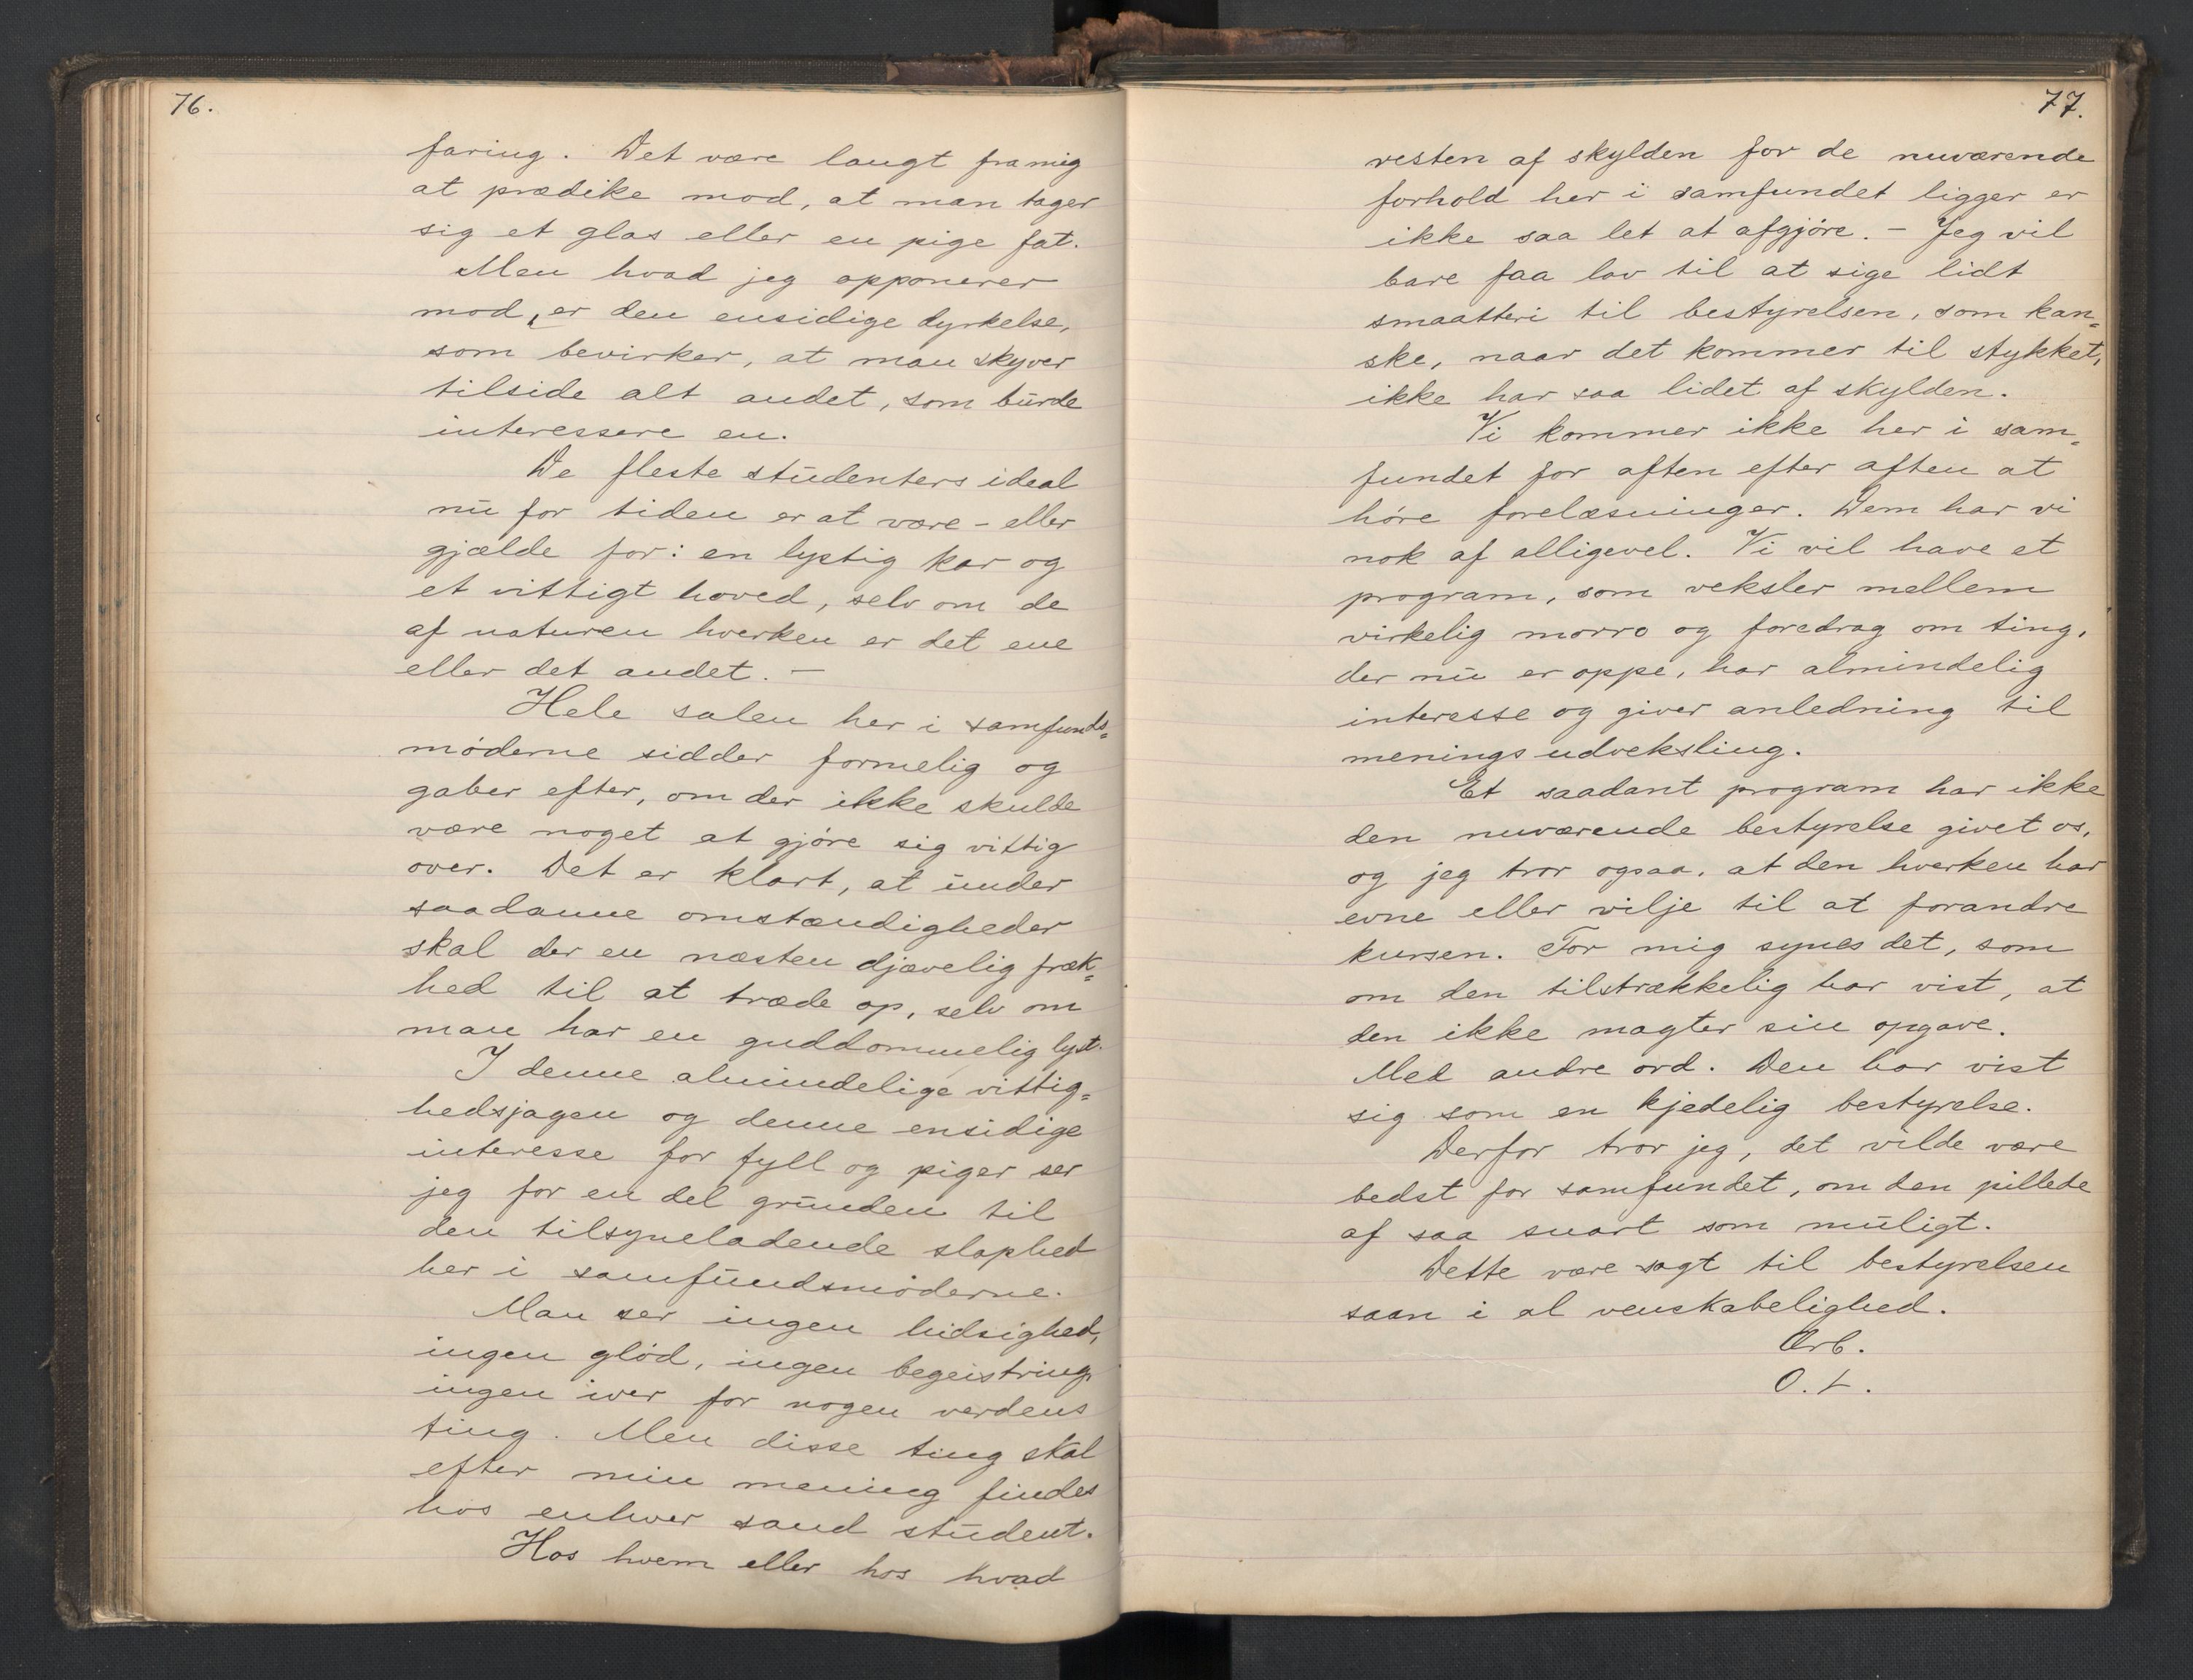 76.
faring. Det være langt fra mig
at prædike mod, at man tager
sig et glas eller en pige fat.
Men hvad jeg opponerer
mod, er den ensidige dyrkelse,
som bevirker, at man skyver
tilside alt andet, som bürde
interessere en.
De fleste stüdenters ideal
nü for tiden er at være - eller
gjælde for: en lystig kar og
et vittigt hoved, selv om de
af naturen hverken er det ene
eller det andet. -
Hele salen her i samfunds=
móderne sidder formelig og
gaber efter, om der ikke skulde
være noget at gjóre sig vittig
over. Det er klart, at ünder
saadanne omstændigheder
skal der en næsten djævelig fræk=
hed til at træde op, selv om
man har en guddommelig lyst.
I denne almindelige vittig=
hedsjagen og denne ensidige
interesse for fyll og piger ser
jeg for en del gründen til
den tilsyneladende slaphed
her i samfündsmóderne.
Man ser ingen hidsighed,
ingen glód, ingen begeistring,
ingen iver for nogen verdens
ting. Men disse ting skal
efter min mening findes
hos enhver sand stüdent.
Hos hvem eller hos hvad
77.
resten af skylden for de nuværende
forhold her i samfundet ligger er
ikke saa let at afgjóre. - Jeg vil
bare faa lov til at sige lidt
smaatteri til bestyrelsen, som kan=
ske, naar det kommer til stykket,
ikke har saa lidet af skylden.
Vi kommer ikke her i sam=
fundet for aften efter aften at
hóre forelæsninger. Dem har vi
nok af alligevel. Vi vil have et
program, som veksler mellem
virkelig morro og foredrag om ting,
der nü er oppe, har almindelig
interesse og giver anledning til
meningsudveksling.
Et saadant program har ikke
den nuværende bestyrelse givet os,
og jeg tror ogsaa, at den hverken har
evne eller vilje til at forandre
kursen. For mig synes det, som
om den tilstrækkelig har vist, at
den ikke magter sin opgave.
Med andre ord. Den har vist
sig som en kjedelig bestyrelse.
Derfor tror jeg, det vilde være
bedst for samfundet, om den pillede
af saa snart som müligt.
Dette være sagt til bestyrelsen
saan i al venskabelighed.
Ærb.
O. L.